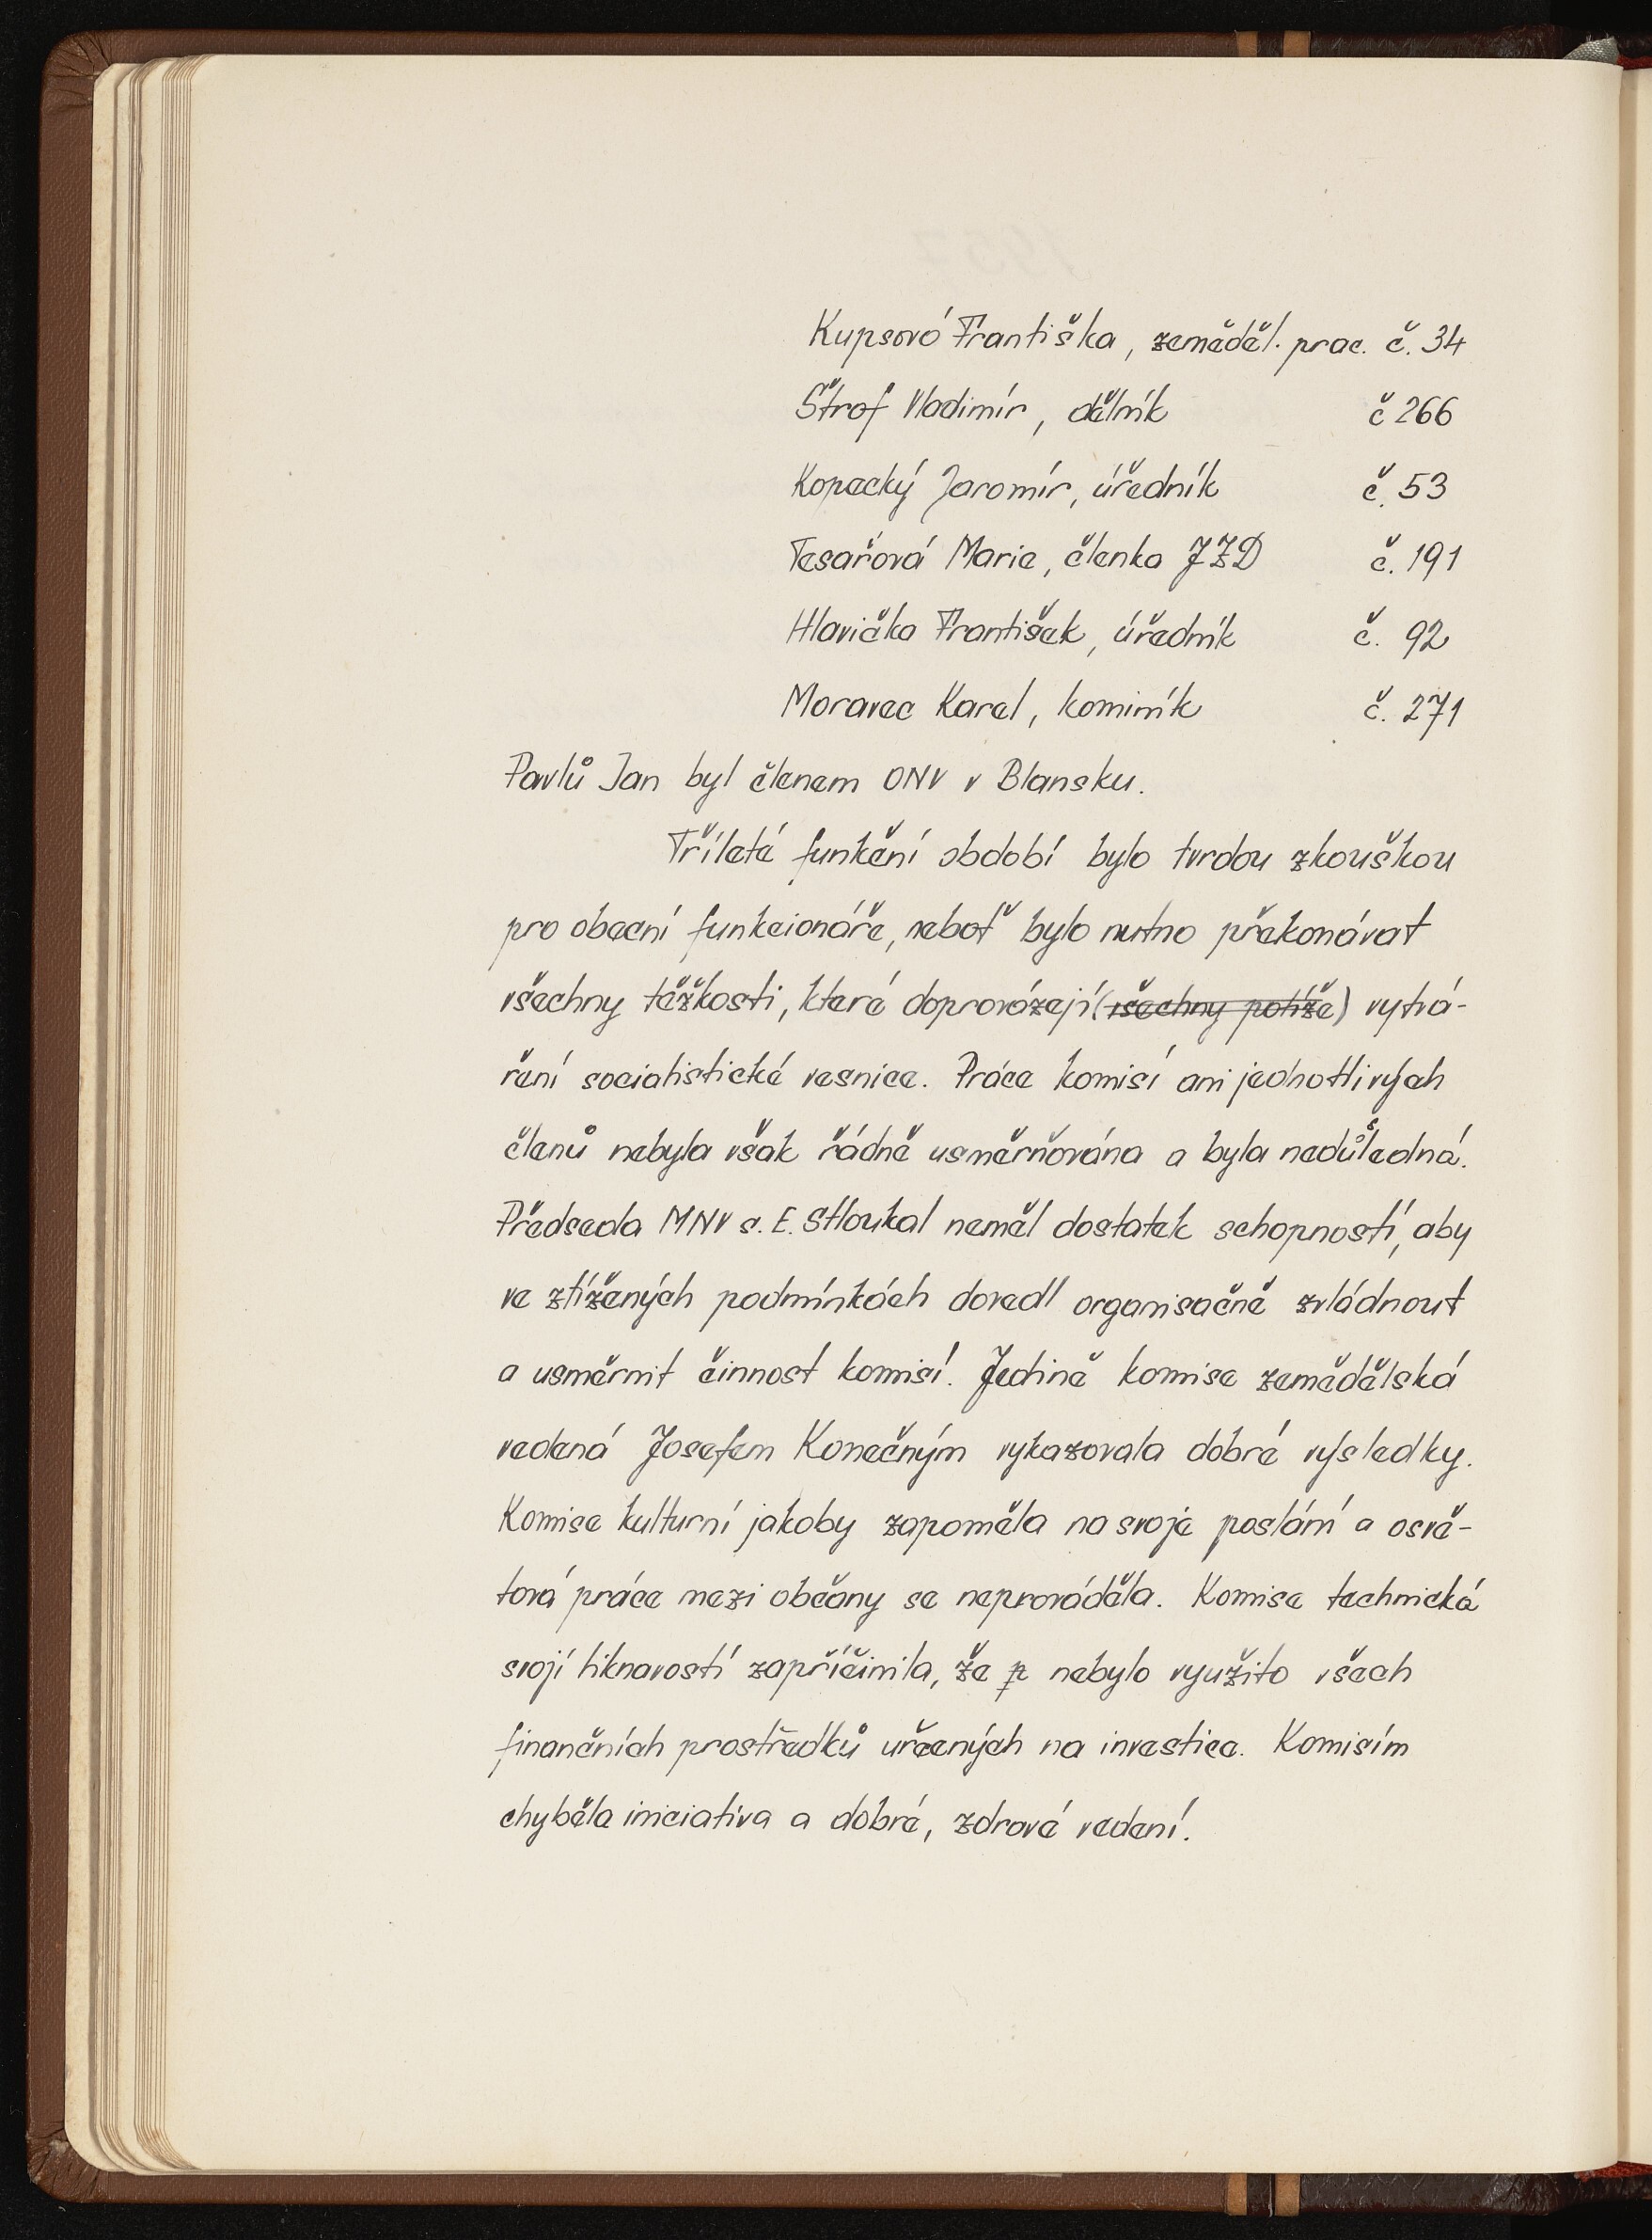 Kupsová Františka, zeměděl. prac. č. 34
Štrof Vladimír, dělník č 266
Kopecký Jaromír, úředník č. 53
Tesařová Marie, členka JZD č. 191
Hlavička František, úředník č. 92
Moravec Karel, kominík č. 271
Pavlů Jan byl členem ONV v Blansku.
Tříleté funkční období bylo tvrdou zkouškou
pro obecní funkcionáře, neboť bylo nutno překonávat
všechny těžkosti, které doprovázejí (všechny potíže) vytvá-
ření socialistické vesnice. Práce komisí ani jednotlivých
členů nebyla však řádně usměrňována a byla nedůsledná.
Předseda MNV s. E. Stloukal neměl dostatek schopností, aby
ve ztížených podmínkách dovedl organisačně zvládnout
a usměrnit činnost komisí. Jedině komise zemědělská
vedená Josefem Konečným vykazovala dobré výsledky.
Komise kulturní jakoby zapoměla na svoje poslání a osvě-
tová práce mezi občany se neprováděla. Komise technická
svojí liknavostí zapříčinila, že p nebylo využito všech
finančních prostředků určených na investice. Komisím
chyběla iniciativa a dobré, zdravé vedení.